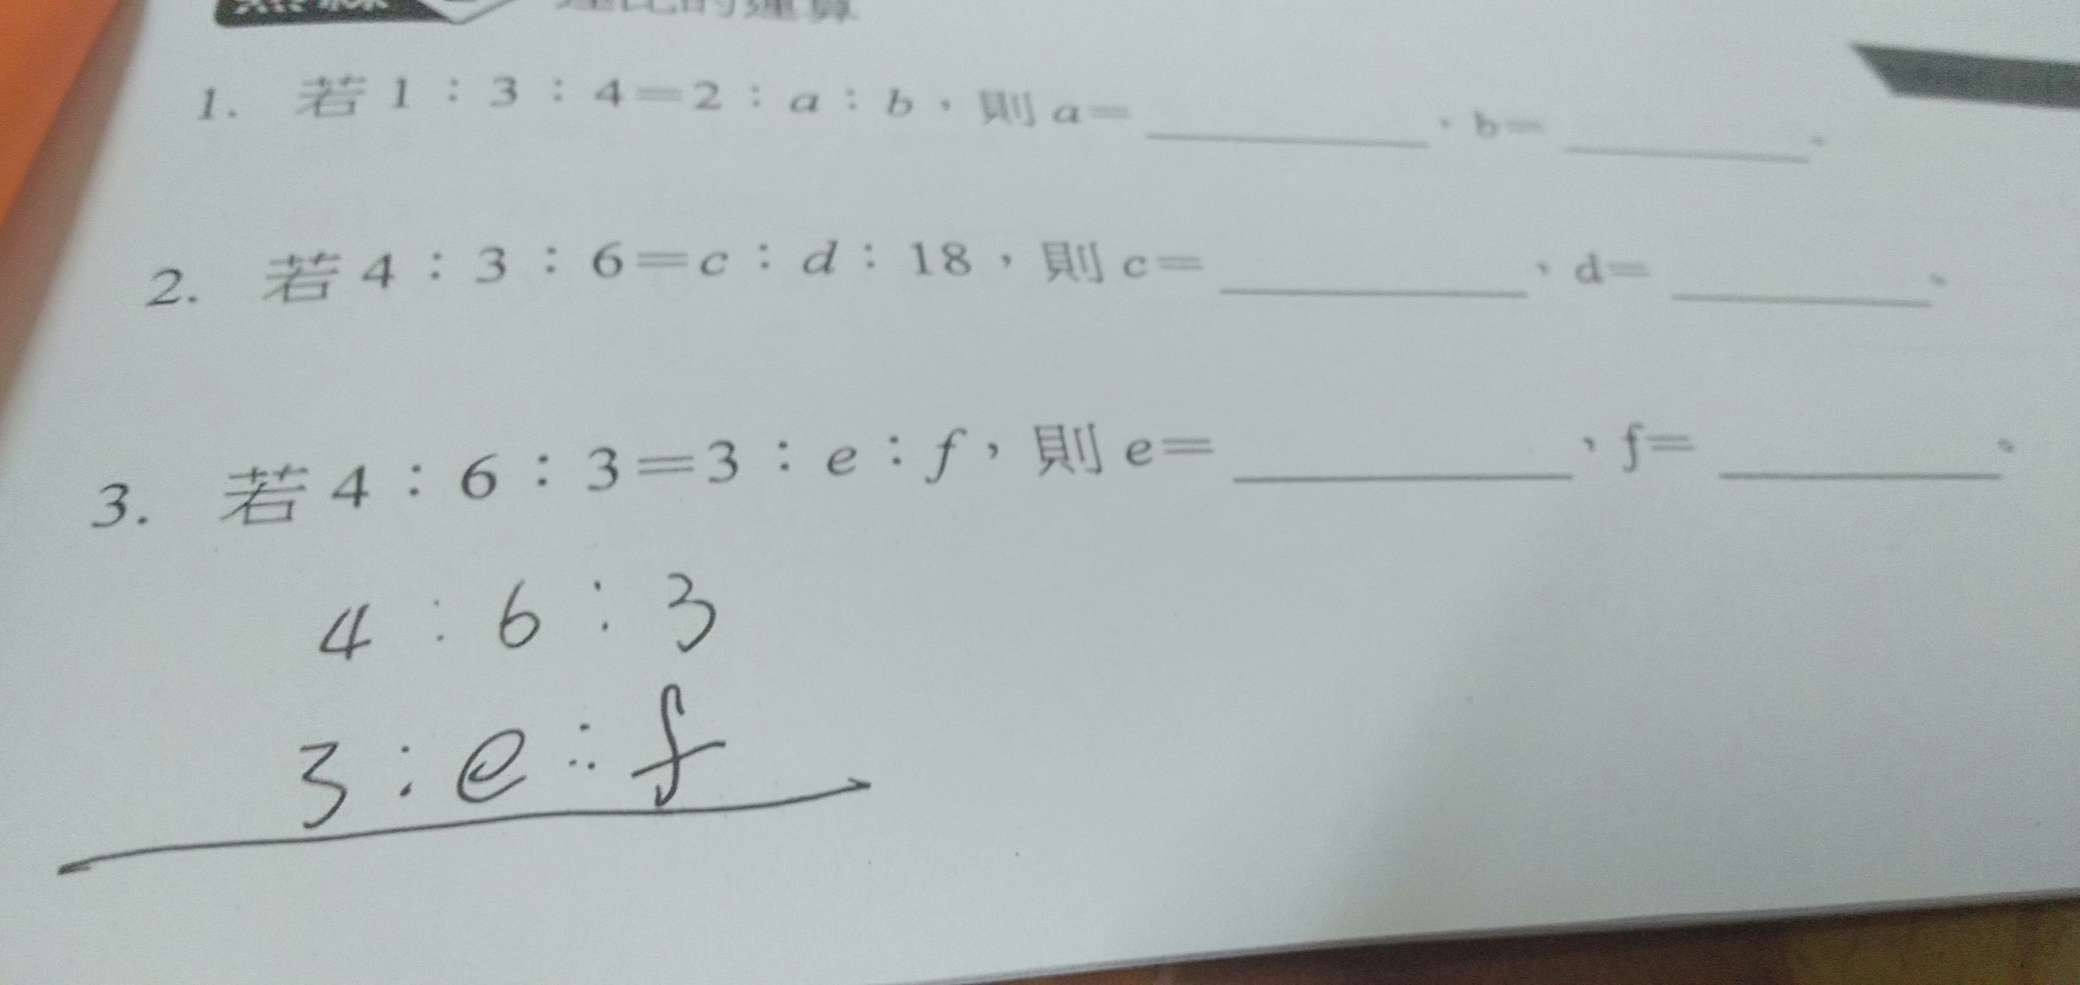 連比的運算
1. 若1：3：4＝2：a：b，則a＝________、b＝________。
2. 若4：3：6＝c：d：18，則c＝________、d＝________。
3. 若4：6：3＝3：e：f，則e＝________、f＝________。
4 : 6 : 3
3 : e : f